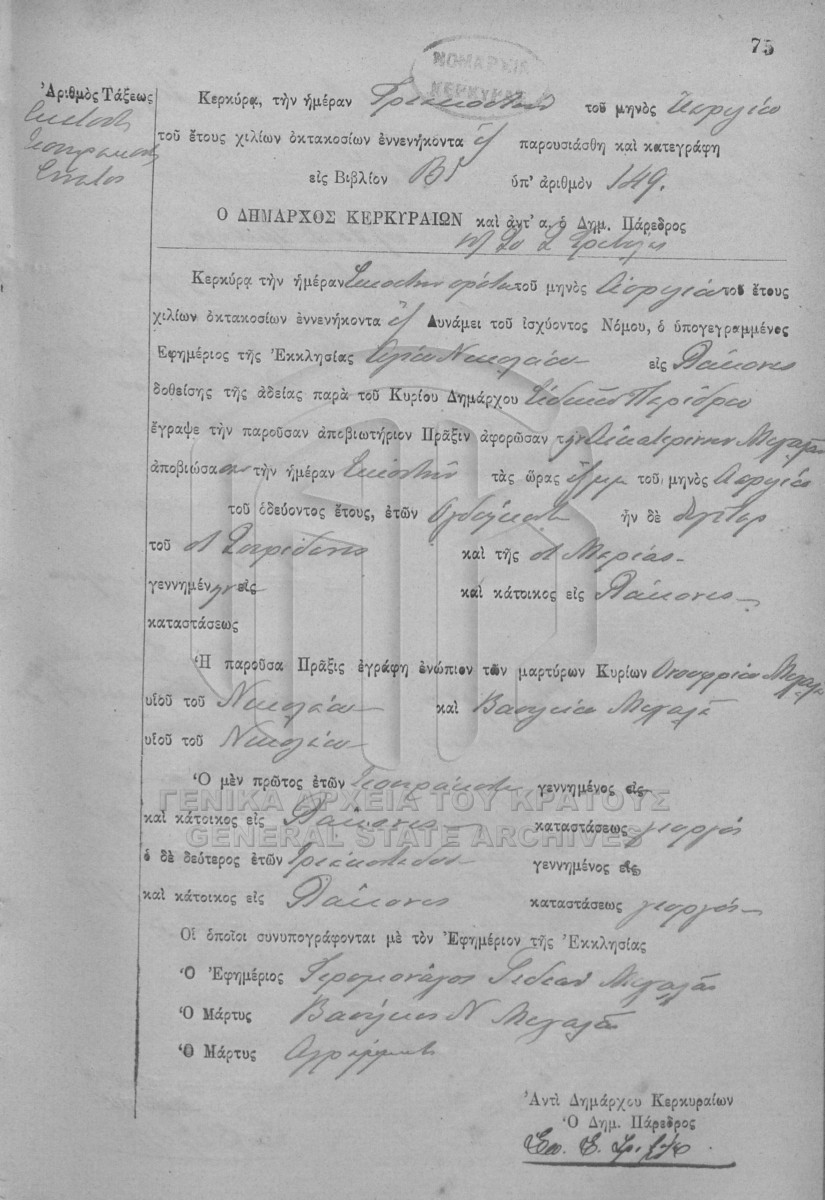 75
ΝΟΜΑΡΧΙΑ
ΚΕΡΚΥΡΑΣ
Ἀριθμὸς Τάξεως
Ἑκατοστὸς
Τεσσαρακοστὸς
Ἔνατος
Κερκύρᾳ, τὴν ἡμέραν Τριακοστὴν τοῦ μηνὸς Ἀπριλίου
τοῦ ἔτους χιλίων ὀκτακοσίων ἐννενήκοντα ἓξ παρουσιάσθη καὶ κατεγράφη
εἰς Βιβλίον Β ὑπ' ἀριθμὸν 149.
Ο ΔΗΜΑΡΧΟΣ ΚΕΡΚΥΡΑΙΩΝ καὶ ἀντ' α. ὁ Δημ. Πάρεδρος
Κερκύρᾳ τὴν ἡμέραν τοῦ μηνὸς Ἀπριλίου τοῦ ἔτους
χιλίων ὀκτακοσίων ἐννενήκοντα ἓξ Δυνάμει τοῦ ἰσχύοντος Νόμου, ὁ ὑπογεγραμμένος
Ἐφημέριος τῆς Ἐκκλησίας Ἁγίου Νικολάου εἰς Λάκωνες
δοθείσης τῆς ἀδείας παρὰ τοῦ Κυρίου Δημάρχου Εἰδικοῦ Παρέδρου
ἔγραψε τὴν παροῦσαν ἀποβιωτήριον Πρᾶξιν ἀφορῶσαν τὴν Αἰκατερίνην Μιχαλᾶ
ἀποβιώσασαν τὴν ἡμέραν Εἰκοστὴν τὰς ὥρας ἓξ μμ τοῦ μηνὸς Ἀπριλίου
τοῦ ὁδεύοντος ἔτους, ἐτῶν Ὀγδοήκοντα ἦν δὲ θυγάτηρ
τοῦ Σπυρίδωνος καὶ τῆς Μαρίας
γεννημένη εἰς καὶ κάτοικος εἰς Λάκωνες
καταστάσεως
Ἡ παροῦσα Πρᾶξις ἐγράφη ἐνώπιον τῶν μαρτύρων Κυρίων Ὀνουφρίου Μιχαλᾶ
υἱοῦ τοῦ Νικολάου καὶ Βασιλείου Μιχαλᾶ
υἱοῦ τοῦ Νικολάου
Ὁ μὲν πρῶτος ἐτῶν Τεσσαράκοντα γεννημένος εἰς
καὶ κάτοικος εἰς Λάκωνες καταστάσεως γεωργός
ὁ δὲ δεύτερος ἐτῶν γεννημένος εἰς
καὶ κάτοικος εἰς Λάκωνες καταστάσεως γεωργός
Οἱ ὁποῖοι συνυπογράφονται μὲ τὸν Ἐφημέριον τῆς Ἐκκλησίας
Ὁ Ἐφημέριος Ἱερομόναχος Μιχαλᾶς
Ὁ Μάρτυς Βασίλειος Ν Μιχαλᾶς
Ὁ Μάρτυς Ἀγράμματος
Ἀντὶ Δημάρχου Κερκυραίων
Ὁ Δημ. Πάρεδρος
ΓΕΝΙΚΑ ΑΡΧΕΙΑ ΤΟΥ ΚΡΑΤΟΥΣ
GENERAL STATE ARCHIVES